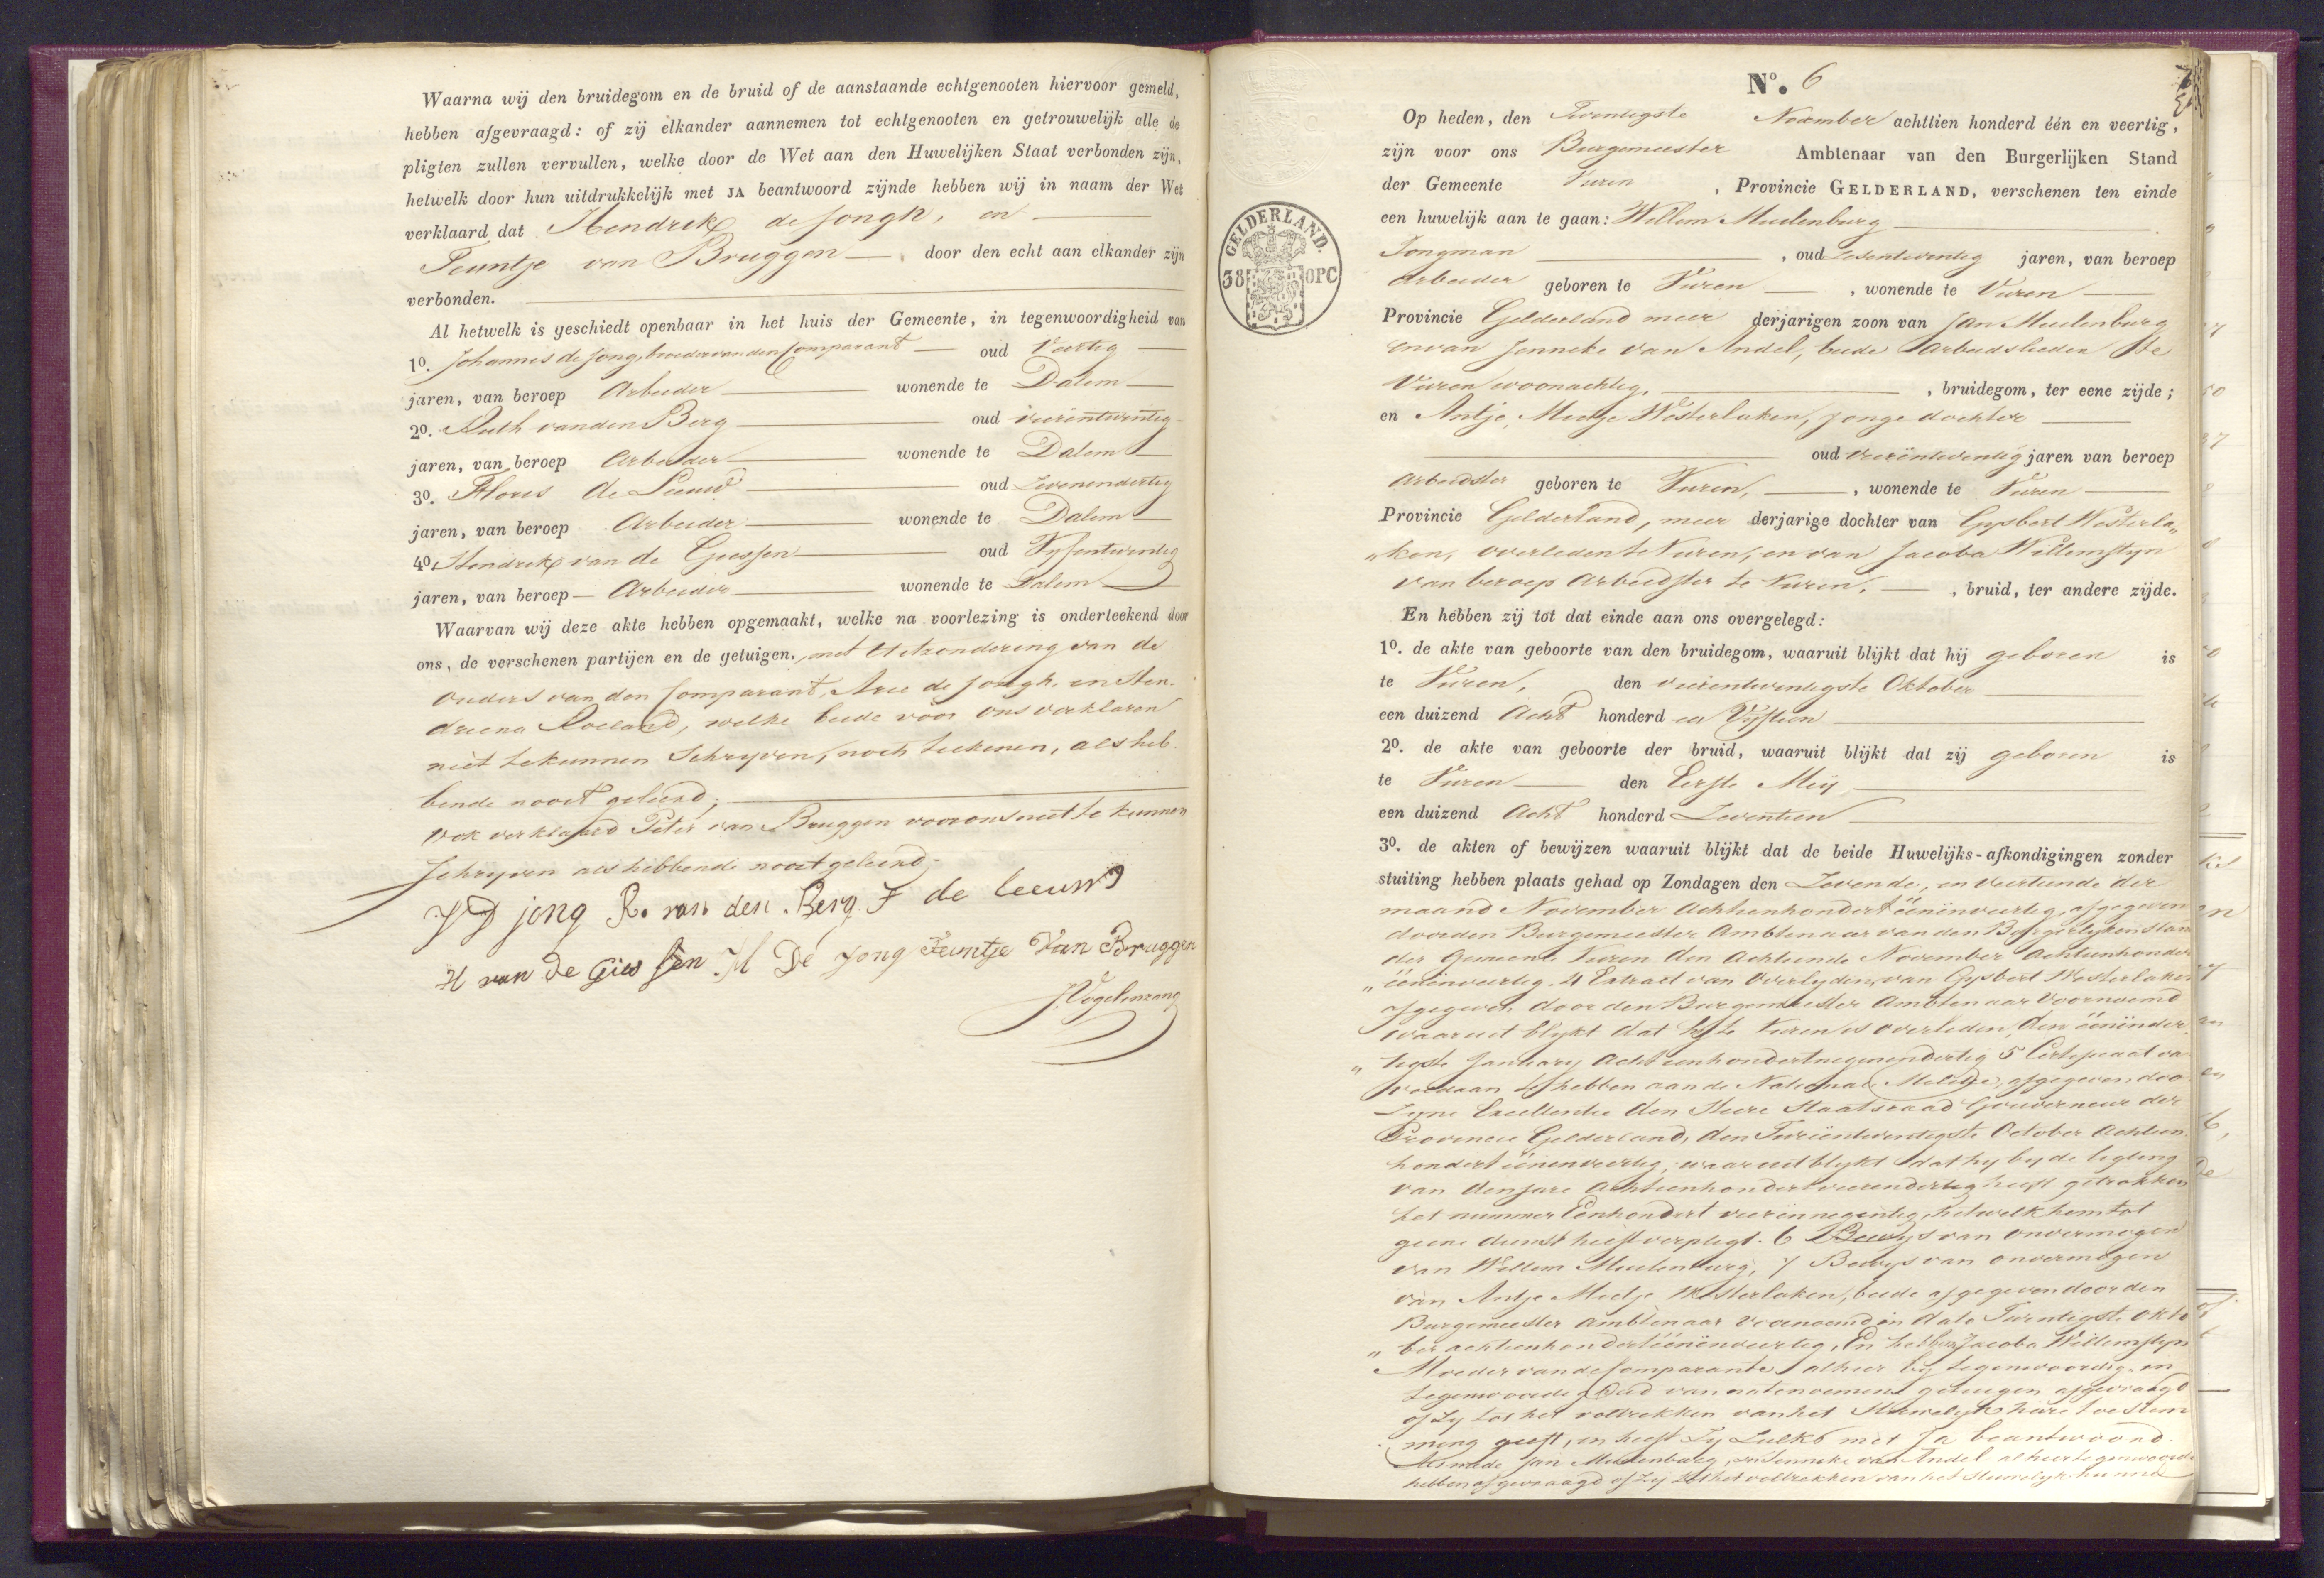 Waarna wij den bruidegom en de bruid of de aanstaande echtgenooten hiervoor gemeld,
hebben afgevraagd: of zij elkander aannemen tot echtgenooten en getrouwelijk alle de
pligten zullen vervullen, welke door de Wet aan den Huwelijken Staat verbonden zijn,
hetwelk door hun uitdrukkelijk met JA beantwoord zijnde hebben wij in naam der Wet
verklaard dat Hendrik de Jongh, en
Teuntje van Bruggen door den echt aan elkander zijn
verbonden.
Al hetwelk is geschiedt openbaar in het huis der Gemeente, in tegenwoordigheid van
1o. Johannes de Jong, broeder van den Comparant oud Veertig
jaren, van beroep Arbeider wonende te Dalem
2o. Ruth van den Berg oud vierentwentig
jaren, van beroep Arbeider wonende te Dalem
3o. Floris de Leeuw oud Zevenendertig
jaren, van beroep Arbeider wonende te Dalem
4o. Hendrik van de Giessen oud Vyfentwentig
jaren, van beroep Arbeider wonende te Dalem
Waarvan wij deze akte hebben opgemaakt, welke na voorlezing is onderteekend door
ons, de verschenen partijen en de getuigen, met uitzondering van de
ouders van den Comparant, Arie de Jongh en Hen-
driena Roeland, welke beide voor ons verklaren
niet te kunnen Schryven, noch teekenen, als heb-
bende nooit geleerd;
ook verklaard Peter van Bruggen voor ons niet te kunnen
Schryven als hebbende nooit geleerd.
J D jong R. van den Berg F de leeuw
H van de Giessen H De Jong Teuntje Van Bruggen
J. Vogelenzang
No. 6
Op heden, den Twentigste November achttien honderd één en veertig,
zijn voor ons Burgemeester Ambtenaar van den Burgerlijken Stand
der Gemeente Vuren, Provincie GELDERLAND, verschenen ten einde
een huwelijk aan te gaan: Willem Meulenburg
Jongman, oud Zesentwentig jaren, van beroep
Arbeider geboren te Vuren, wonende te Vuren
Provincie Gelderland meer derjarigen zoon van Jan Meulenburg
en van Jenneke van Andel, beide Arbeidslieden te
Vuren woonachtig, bruidegom, ter eene zijde;
en Antje Meetje Westerlaken, Jonge dochter
oud vierëntwentig jaren van beroep
Arbeidster geboren te Vuren, wonende te Vuren
Provincie Gelderland, meer derjarige dochter van Gysbert Westerla„
„ken, overleden te Vuren, en van Jacoba Willemstyn
van beroep Arbeidster te Vuren, bruid, ter andere zijde.
En hebben zij tot dat einde aan ons overgelegd:
1o. de akte van geboorte van den bruidegom, waaruit blijkt dat hij geboren is
te Vuren, den vierentwentigste Oktober
een duizend Acht honderd en Vyftien
2o. de akte van geboorte der bruid, waaruit blijkt dat zij geboren is
te Vuren den Eerste Mey
een duizend Acht honderd Zeventien
3o. de akten of bewijzen waaruit blijkt dat de beide Huwelijks-afkondigingen zonder
stuiting hebben plaats gehad op Zondagen den Zevende, en veertiende der
maand November Achtienhondert éénënveertig, afgegeven
door den Burgemeester Ambtenaar van den Burgerlyken Stand
der Gemeente Vuren den Achtiende November Achtienhondert
„éénënveertig. 4 Extract van Overlyden, van Gysbert Westerlaken
afgegeven door den Burgemeester Ambtenaar voornoemd
waaruit blykt dat hy te Vuren is overleden, den éénënder
„tigste January Achtienhondertnegenendertig 5 Certificaat van
voldaan te hebben aan de Nationale Militie, afgegeven door
Zyne Excellentie den Heere Staatsraad Gouverneur der
Provincie Gelderland, den October Achtien-
hondert éénenveertig, waaruit blykt dat hy by de ligting
van den jare Achtienhondert vierendertig heeft getrokken
het nummer Eenhondert vierënnegentig, hetwelk hem tot
geene dienst heeft verpligt. 6 Bewys van onvermogen
van Willem Meulenburg, 7 Bewys van onvermogen
van Antje Meetje Westerlaken, beide afgegeven door den
Burgemeester Ambtenaar voornoemd in dato Twentigste Okto
„ber achtienhondertéénënveertig, En hebben Jacoba Willemstyn
Moeder van de Comparante alhier by tegenwoordig, in
tegenwoordigheid van natenoemene getuigen afgevraagd
of Zy tot het voltrekken van het Huwelyk hare toestem
ming geeft, en heeft Zy Zulks met Ja beantwoord.
Alsmede Jan Meulenburg, en Jenneke van Andel alhier tegenwoordig
hebben afgevraagd of Zy tot het voltrekken van het Huwelyk hunne
GELDERLAND.
38 OPC